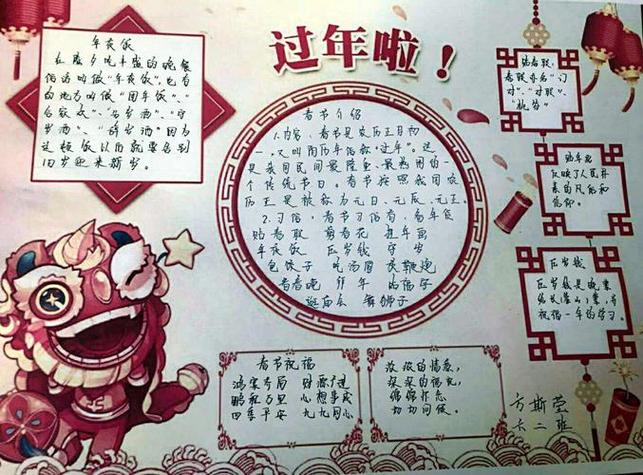 过年啦！
年夜饭
在除夕吃丰盛的晚餐
俗话叫做"年夜饭",也有
的地方叫做"团年饭"、"
合家欢"、"守
岁酒"、"辞岁酒"因为
这顿饭以后就要告别
旧岁迎来新岁。
春节介绍
1.内容,春节是农历正月初
一,又叫阴历年俗称"过年"。这
是我国民间最隆重、最热闹的一
个传统节日。春节按照我国农
历正是被称为元日、元辰、元正。
2.习俗,春节习俗有,看年食
贴春联 剪窗花 挂年画
年夜饭 压岁钱 守岁
包饺子 吃汤圆 放鞭炮
看春晚 拜年 贴福字
逛庙会 舞狮子
贴春联:
春联亦名"门
对"、"对联"、
"桃符"
贴年画
反映了人民朴
素的风俗和
信仰。
压岁钱
压岁钱是晚辈
祝福一年的学习。
春节祝福
鸿案齐局 财源广进
鹏程万里 心想事成
四季平安 九九同心
浓浓的情意,
深深的祝礼,
绵绵
切切问候。
方斯莹
六二班